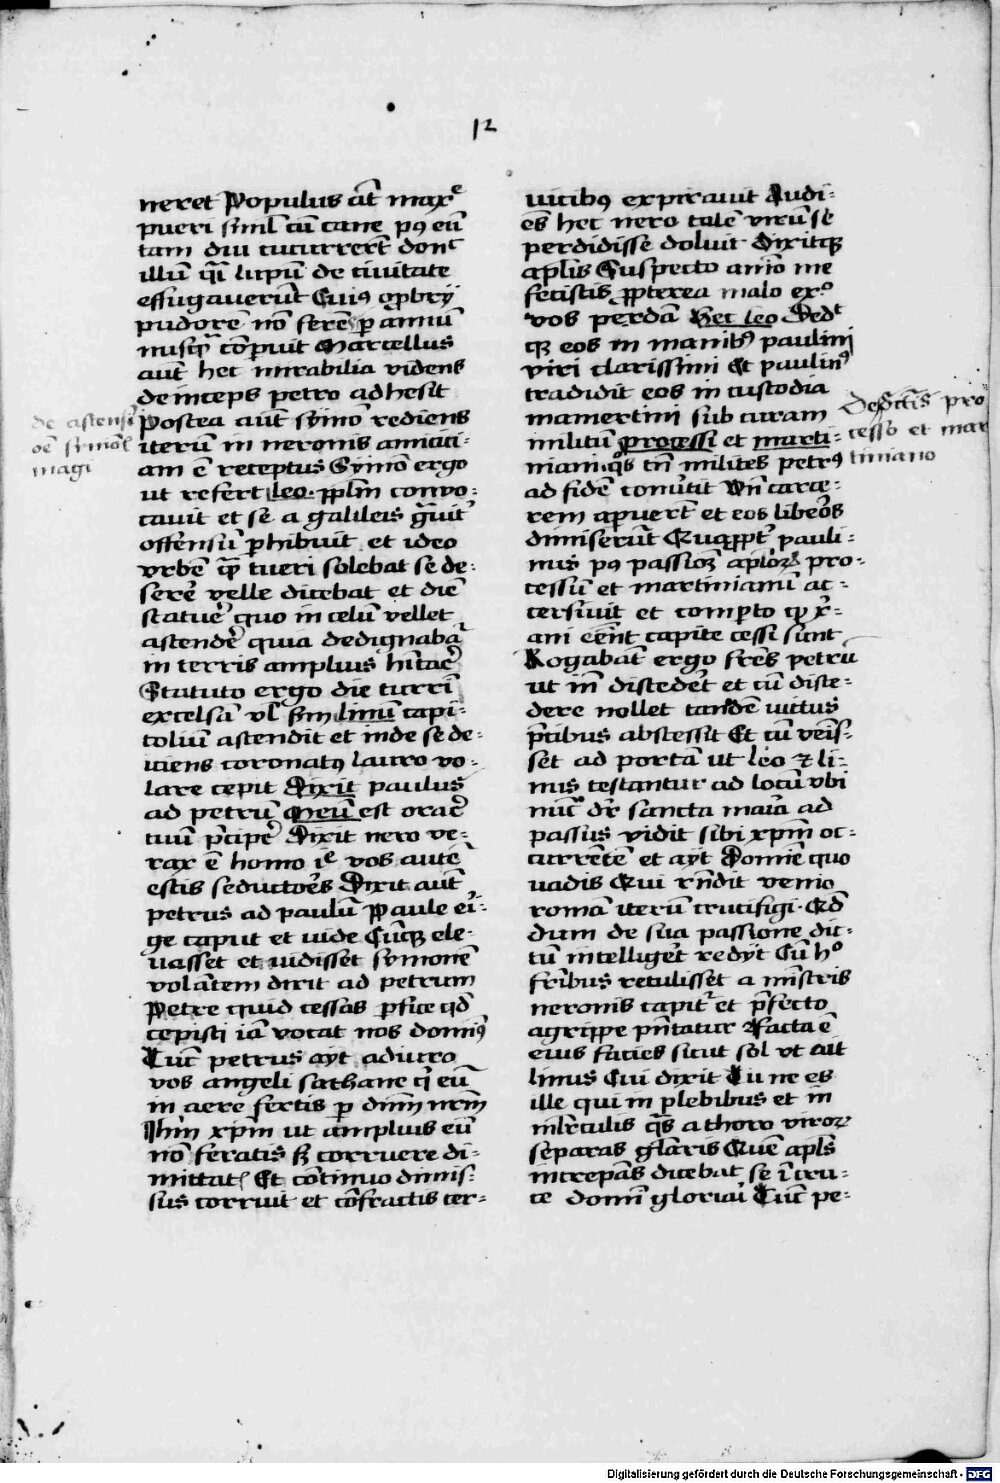 12
neret Populus at̄ maxᵉ
pueri siml̄ cū cane pꝰ eū
tam diu cucurrerēt donᶜ
illū q̄i lupū de ciuitate
effugauerūt Cuiꝰ oꝓbrij
pudorē nō ferēs ꝑ annū
nusq̄ cōperuit Marcellus
aūt hec mirabilia videns
deinceps petro adhesit
Postea aūt symō rediens
iterū in neronis amiciti-
am ē receptus Symō ergo
ut refert leo. ppl̄m conuo-
cauit et se a galileis g̃uit᷑
offensū ꝑhibuit et ideo
vrbē q̄ tueri solebat se de-
serē velle dicebat et diē
statuē quo in celū vellet
ascendē quia dedignabat̄
in terris amplius hītaē
Statuto ergo die turrī
excelsā vl̄ sm̄ linū capi-
toliū ascendit et inde se de-
iciens coronatꝰ lauro vo-
lare cepit Dixit paulus
ad petrū Meū est oraē
tuū p̄cipē Dixit nero ve-
rax ē homo iᵉ vos autē
estis seductoēs Dixit aūt
petrus ad paulū Paule ei-
ge caput et vide Cūqꝫ ele-
uasset et vidisset symonē
volātem dixit ad petrum
Petre quid cessas ꝑfice qd̄
cepisti iā vocat nos domīꝰ
Tūc petrus ayt adiuro
vos angeli sathane q̇ eū
in aere fertis ꝑ dnm̄ nrm̄
Ihm̄ xpm̄ ut amplius eū
nō feratis sꝫ corruere di-
mittatꝭ Et cōtinuo dimis-
sus corruit et cōfractis cer-
de ascensi
oē symōꝭ
magi
uicibꝰ expirauit Audi-
ēs hec nero talē virū se
perdidisse doluit Dixitqꝫ
apl̄is Suspecto aīo me
fecistis ꝓpterea malo exᵒ
vos perdā Hec leo Dedᵗ
qꝫ eos in manibꝰ paulini
viri clarissimi Et paulinꝰ
tradidit eos in custodia
mamertini sub curam
militū processi et marti-
niani. q̊s tn̄ milites petrꝰ
ad fidē conūtit vn̄ carce-
rem aperuert̄ et eos libeōs
dimiserūt Quaꝓpt᷑ pauli-
nus pꝰ passioꝫ apl̄oꝝ pro-
cessū et martinianū ac-
cersiuit et comperto qꝫ xr̄-
ani eēnt capite cessi sunt
Rogabāt ergo frēs petrū
ut in̄ discedēt et cū disce-
dere nollet tandē uictus
p̄cibus abscessit Et cū venīs-
set ad portā ut leo ⁊ li-
nus testantur ad locū vbi
nūc dr̄ sancta maīa ad
passus vidit sibi xpm̄ oc-
currētē et ayt Domīe quo
vadis Qui rn̄dit venio
romā iterū crucifigi. Qd̄
dum de sua passione dic-
tū intelligēt redijt Cū hᵒ
fribus retulisset a mīstris
neronis capit᷑ et p̄fecto
agrippe pn̄tatur Facta ē
eius facies sicut sol vt ait
linus Cui dixit Tu ne es
ille qui in plebibus et in
ml̄rculis q̄s a thoro viroꝝ
separas gl̄aris Quē apl̄s
increpās dicebat se ī cru-
ce domī gloriari Tūc pe-
De sctīs pro
cesso et mar
tiniano
Digitalisierung gefördert durch die Deutsche Forschungsgemeinschaft - DFG